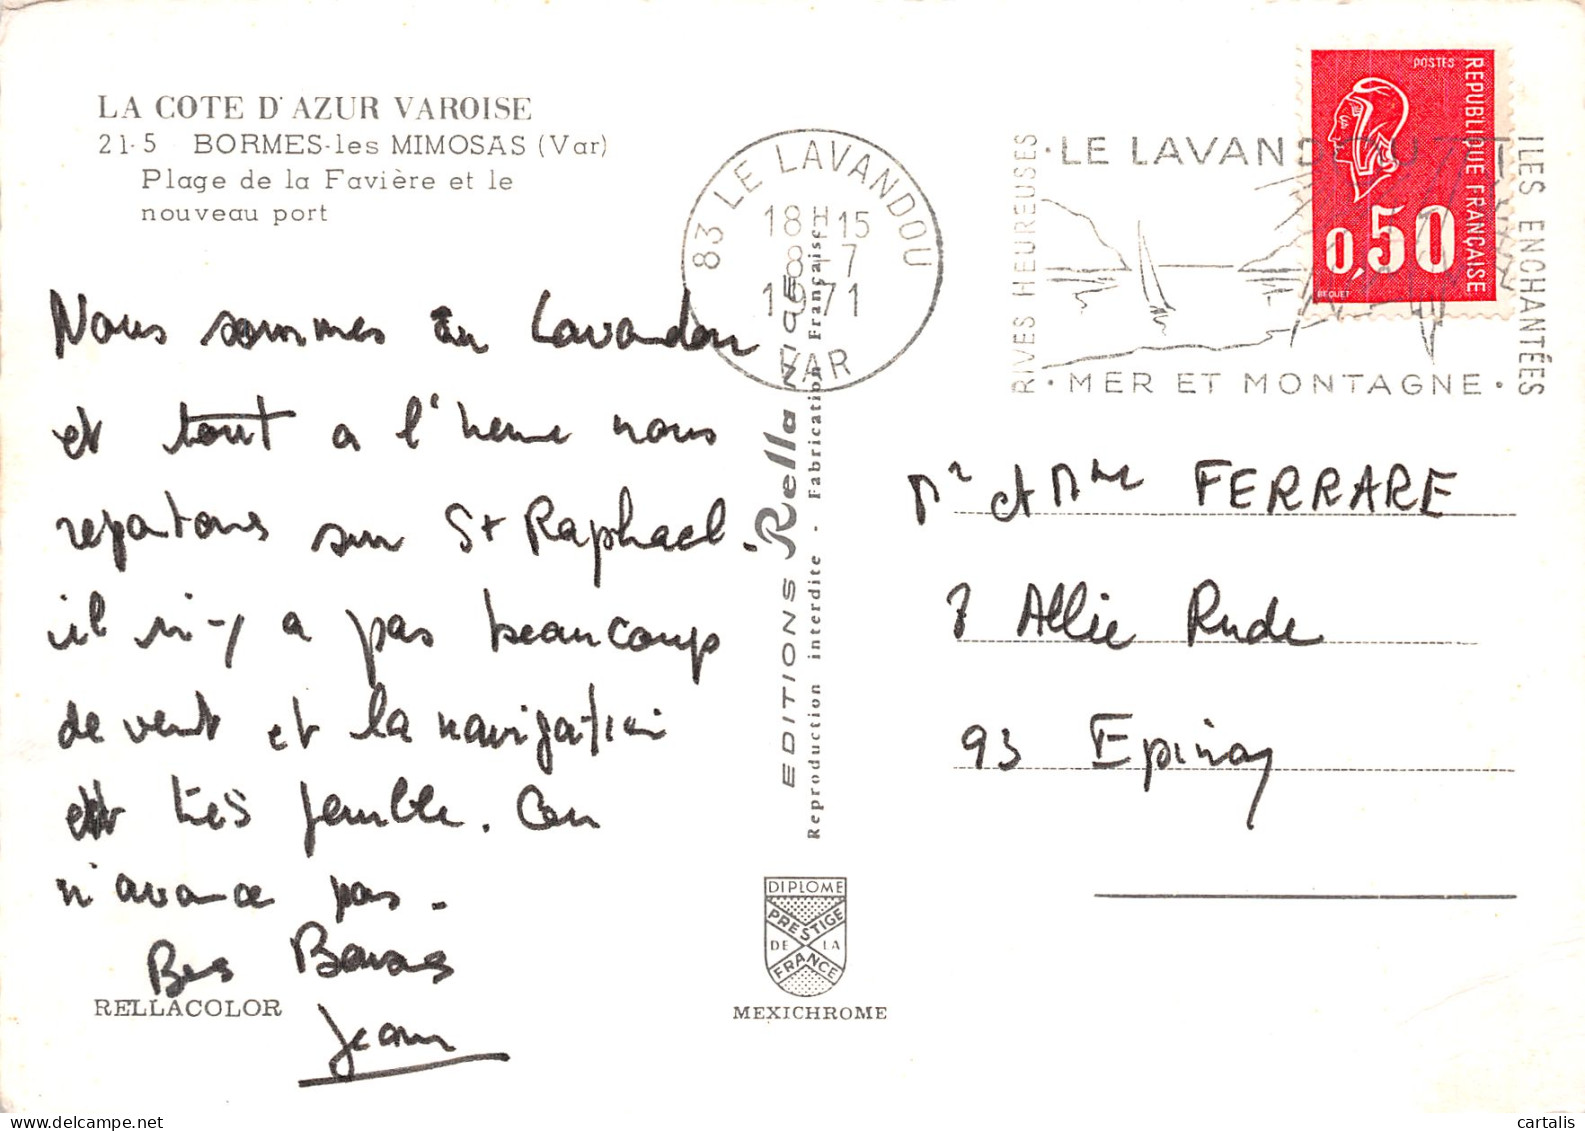 LA COTE D'AZUR VAROISE
21-5 BORMES-les MIMOSAS (Var)
Plage de la Favière et le
nouveau port
Nous sommes au Lavandou
et tout a l'heure nous
repartons sur St Raphael.
il n'y a pas beaucoup
de vent et la navigation
est très penible. On
n'avance pas.
Bes Baises
Jean
RELLACOLOR
83 LE LAVANDOU
18H15
8-7
1971
VAR
EDITIONS Rella NICE
Reproduction interdite - Fabrication Française
DIPLOME
PRESTIGE
DE LA
FRANCE
MEXICHROME
RIVES HEUREUSES
· LE LAVANDOU
· MER ET MONTAGNE ·
ILES ENCHANTÉES
POSTES
REPUBLIQUE FRANÇAISE
0,50
BEQUET
Mr et Mme FERRARE
7 Allée Rude
93 Epinay
cartalis